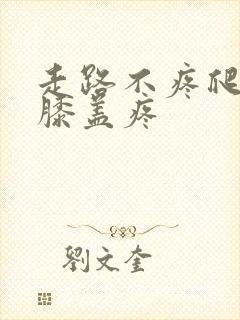 走路不疼爬
膝盖疼
劉文奎